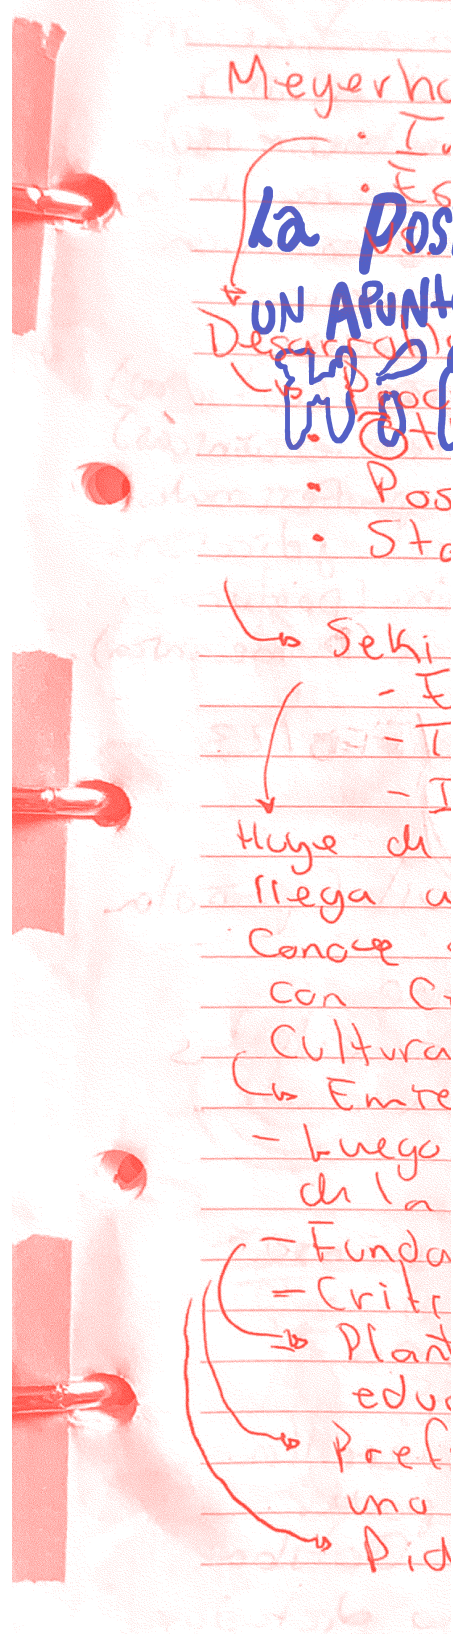 Meyerho
· I
· Es
La Pos
UN APUNT
Desarroll
Proc
HÉ
· Ot
· Pos
· Sta
Seki
- E
- I
- I
Huye de
llega a
Conoce
con C
Cultura
Emre
- Luego
de la
- Funda
- Criti
Plant
edu
Pref
una
Pid